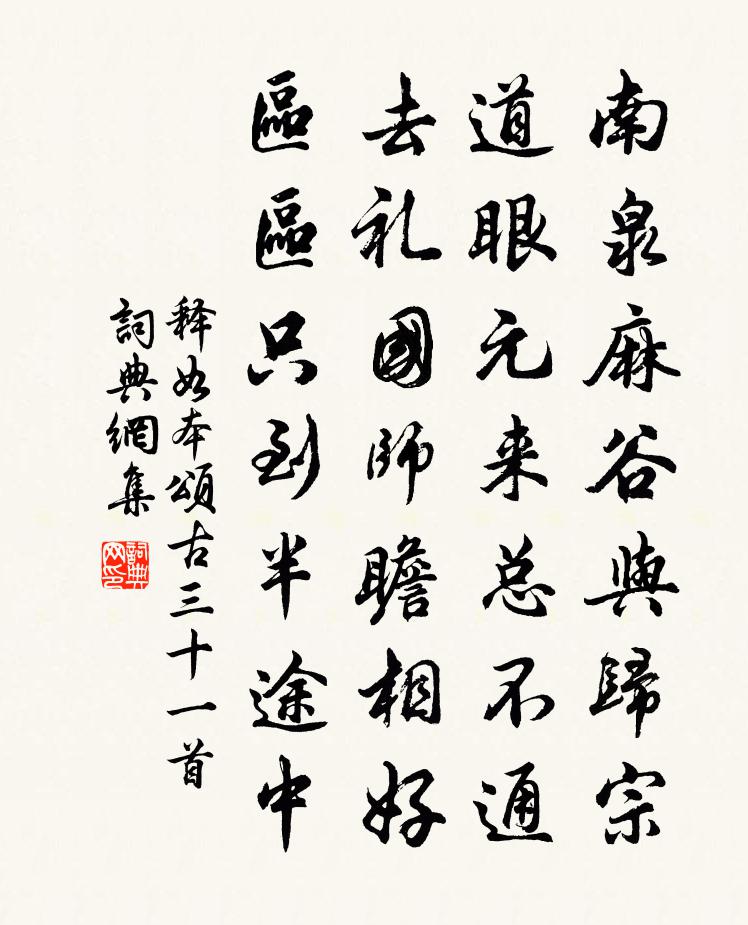 南泉麻谷與歸宗
道眼元来总不通
去礼國師瞻相好
區區只到半途中
释如本頌古三十一首
詞典網集
詞典网印